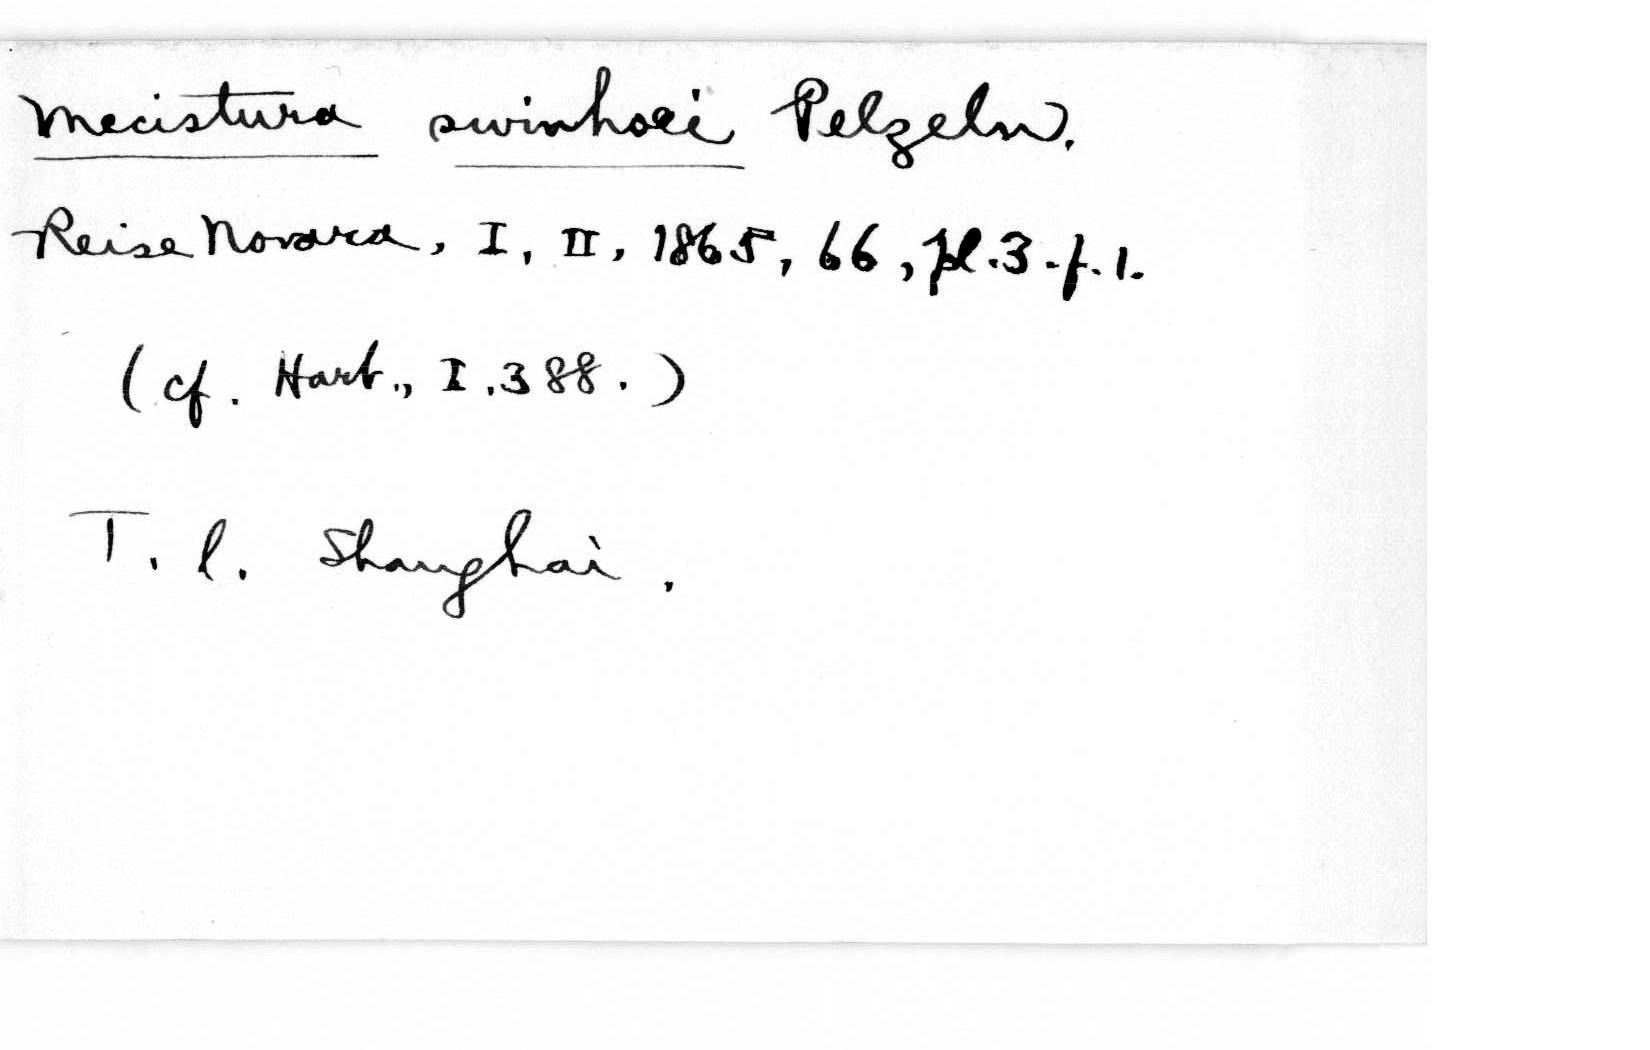 Mecistura swinhoei Pelzeln.
Reise Novara, I, II, 1865, 66, pl.3.f.1.
(cf. Hart., I.388.)
T. l. Shanghai.